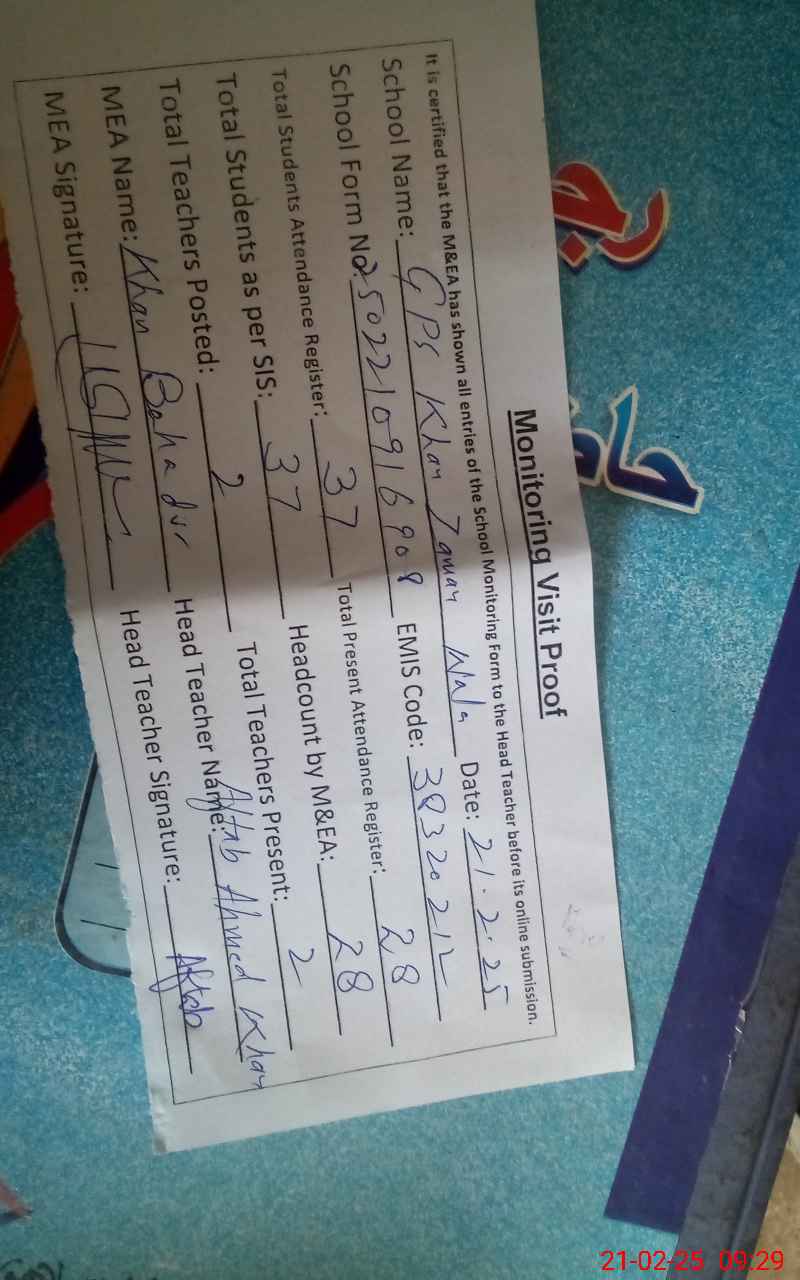 Monitoring Visit Proof
It is certified that the M&EA has shown all entries of the School Monitoring Form to the Head Teacher before its online submission.
School Name: GPS Khan Zaman Wala Date: 21.2.25
School Form No: 2502210916908 EMIS Code: 38320212
Total Students Attendance Register: 37 Total Present Attendance Register: 28
Total Students as per SIS: 37 Headcount by M&EA: 28
Total Teachers Posted: 2 Total Teachers Present: 2
MEA Name: Khan Bahadur Head Teacher Name: Aftab Ahmed Khan
MEA Signature: Head Teacher Signature: Aftab
21-02-25 09:29